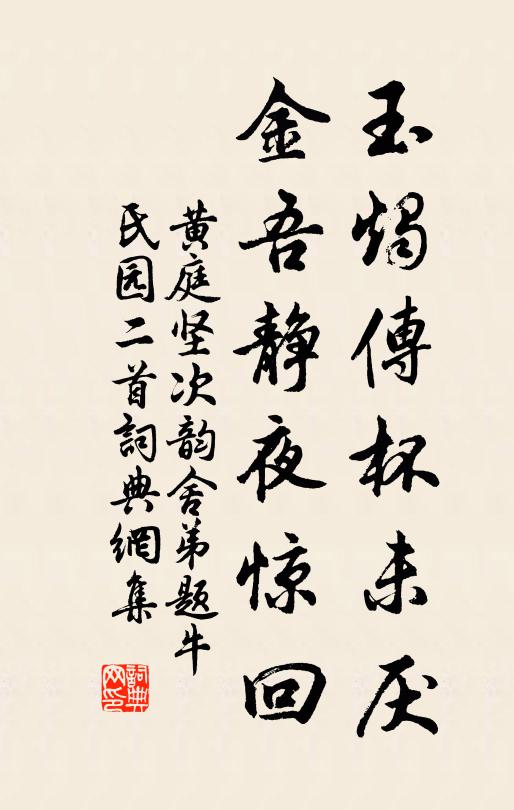 玉烛傳杯未厌
金吾静夜惊回
黄庭坚次韵舍弟题牛
民园二首詞典網集
詞典
网印